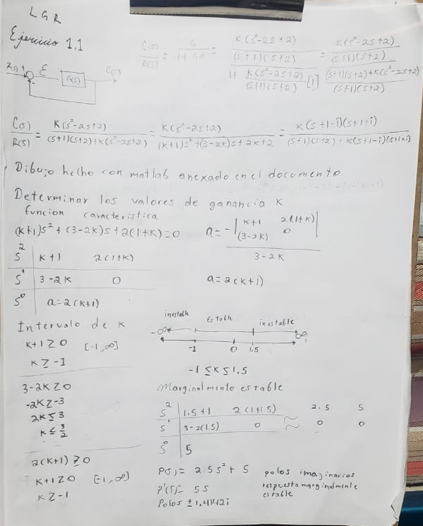 LGR
Ejercicio 1.1
C(s)/R(s) = G/(1+GH) = (K(s²-2s+2)/((s+1)(s+2)))/(1+ K(s²-2s+2)/((s+1)(s+2)) [1]) = (K(s²-2s+2)/((s+1)(s+2)))/(((s+1)(s+2)+K(s²-2s+2))/((s+1)(s+2)))
R(s) + E G(s) C(s)
C(s)/R(s) = K(s²-2s+2)/((s+1)(s+2)+K(s²-2s+2)) = K(s²-2s+2)/((K+1)s²+(3-2K)s+2K+2) = K(s+1-i)(s+1+i)/((s+1)(s+2)+K(s+1-i)(s+1+i))
Dibujo hecho con matlab anexado en el documento
Determinar los valores de ganancia K
funcion caracteristica
(K+1)s²+(3-2K)s+2(1+K)=0
s² K+1 2(1+K)
s¹ 3-2K 0
s⁰ a=2(K+1)
a=-|K+1 2(1+K)|
(3-2K) 0
3-2K
a=2(K+1)
Intervalo de K
K+1≥0 [-1,∞]
K≥-1
3-2K≥0
-2K≥-3
2K≤3
K≤3/2
2(K+1)≥0
K+1≥0 [-1,∞]
K≥-1
inestable estable inestable
-∞ -1 0 1.5 ∞
-1≤K≤1.5
Marginalmente estable
s² 1.5+1 2(1+1.5) 2.5 5
s¹ 3-2(1.5) 0 ~ 0 0
s⁰ 5
P(s)= 2.5s²+5 polos imaginarios
P'(s)= 5s respuesta marginalmente estable
Polos ±1.4142i